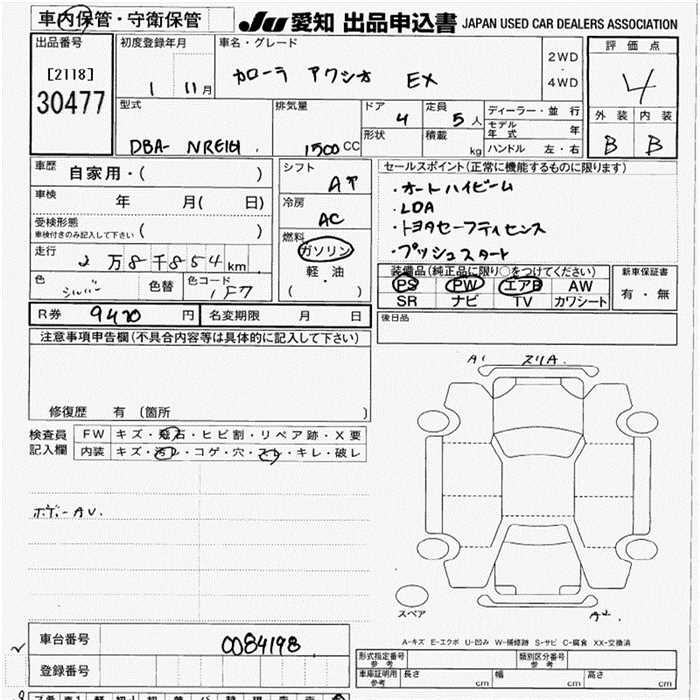 車内保管・守衛保管 JU 愛知 出品申込書 JAPAN USED CAR DEALERS ASSOCIATION
出品番号 初度登録年月 車名・グレード 評価点
[2118] 1 11月 カローラ アクシオ EX 2WD・4WD 4
30477
型式 排気量 ドア 定員 ディーラー・並行 外装 内装
DBA- NRE161. 1500CC 4 5人 モデル年式 年 B B
形状 積載 kg ハンドル 左・右
車歴 自家用・( ) シフト AT セールスポイント(正常に機能するものに限ります)
車検 年 月( 日) 冷房 AC ・オートハイビーム
受検形態 ・LDA
車検付きのみ記入して下さい ( ) 燃料 ・トヨタセーフティセンス
走行 2万8千854km ガソリン ・プッシュスタート
色 シルバー 色替 色コード 1F7 軽・油 ( ・ )
装備品(純正品に限り○をつけてください) 新車保証書
PS PW エアB AW 有・無
SR ナビ TV カワシート
R券 9470円 名変期限 月 日 後日品
注意事項申告欄(不具合内容等は具体的に記入して下さい)
修復歴 有 (箇所 )
A1 スリA.
検査員記入欄 FW キズ・飛石・ヒビ割・リペア跡・X要
内装 キズ・汚れ・コゲ・穴・スレ・キレ・破レ
ボデーAU.
スペア
車台番号 0084198
登録番号
A-キズ E-エクボ U-凹み W-補修跡 S-サビ C-腐食 XX-交換済
形式指定番号 参考 類別区分番号 参考
車庫証明用 参考 長さ cm 幅 cm 高さ cm